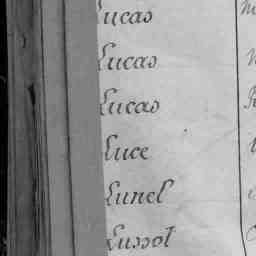 Lucas
Lucas
Lucas
Luce
Lunel
Lussot